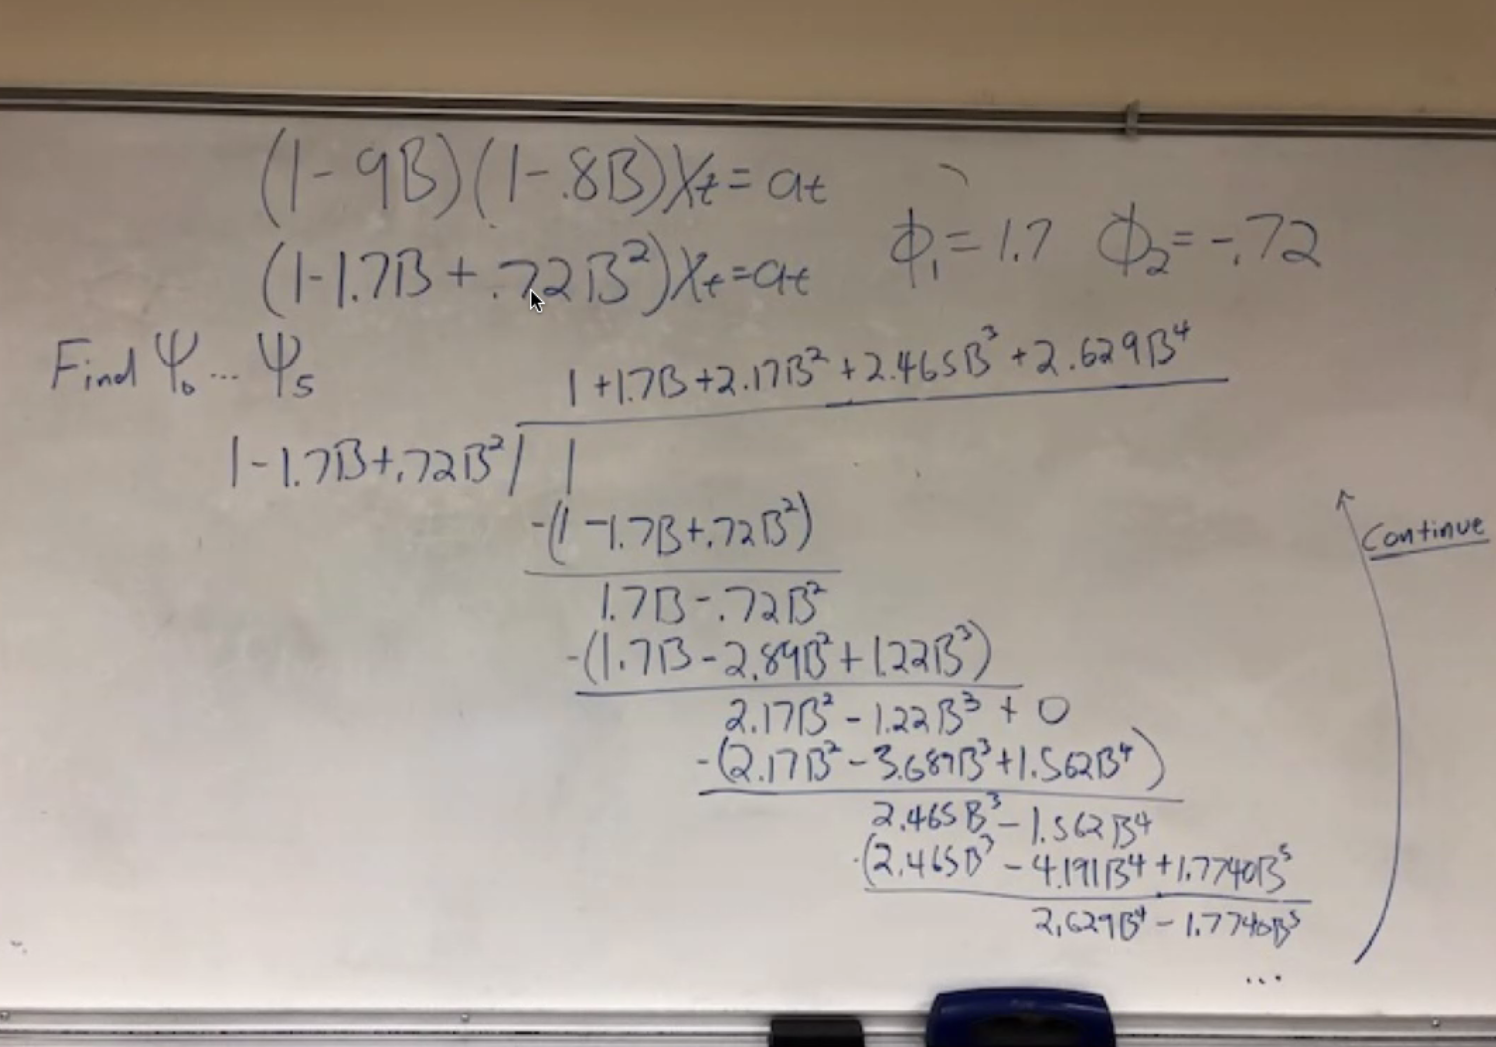 (1-.9B)(1-.8B)Xt=at
(1-1.7B+.72B²)Xt=at
ϕ₁=1.7 ϕ₂=-.72
Find Ψ₀... Ψ₅
1+1.7B+2.17B²+2.465B³+2.629B⁴
1-1.7B+.72B²/ 1
-(1-1.7B+.72B²)
1.7B-.72B²
-(1.7B-2.89B²+1.22B³)
2.17B²-1.22B³+0
-(2.17B²-3.689B³+1.562B⁴)
2.465B³-1.562B⁴
-(2.465B³-4.191B⁴+1.7740B⁵
2.629B⁴-1.7740B⁵
...
Continue